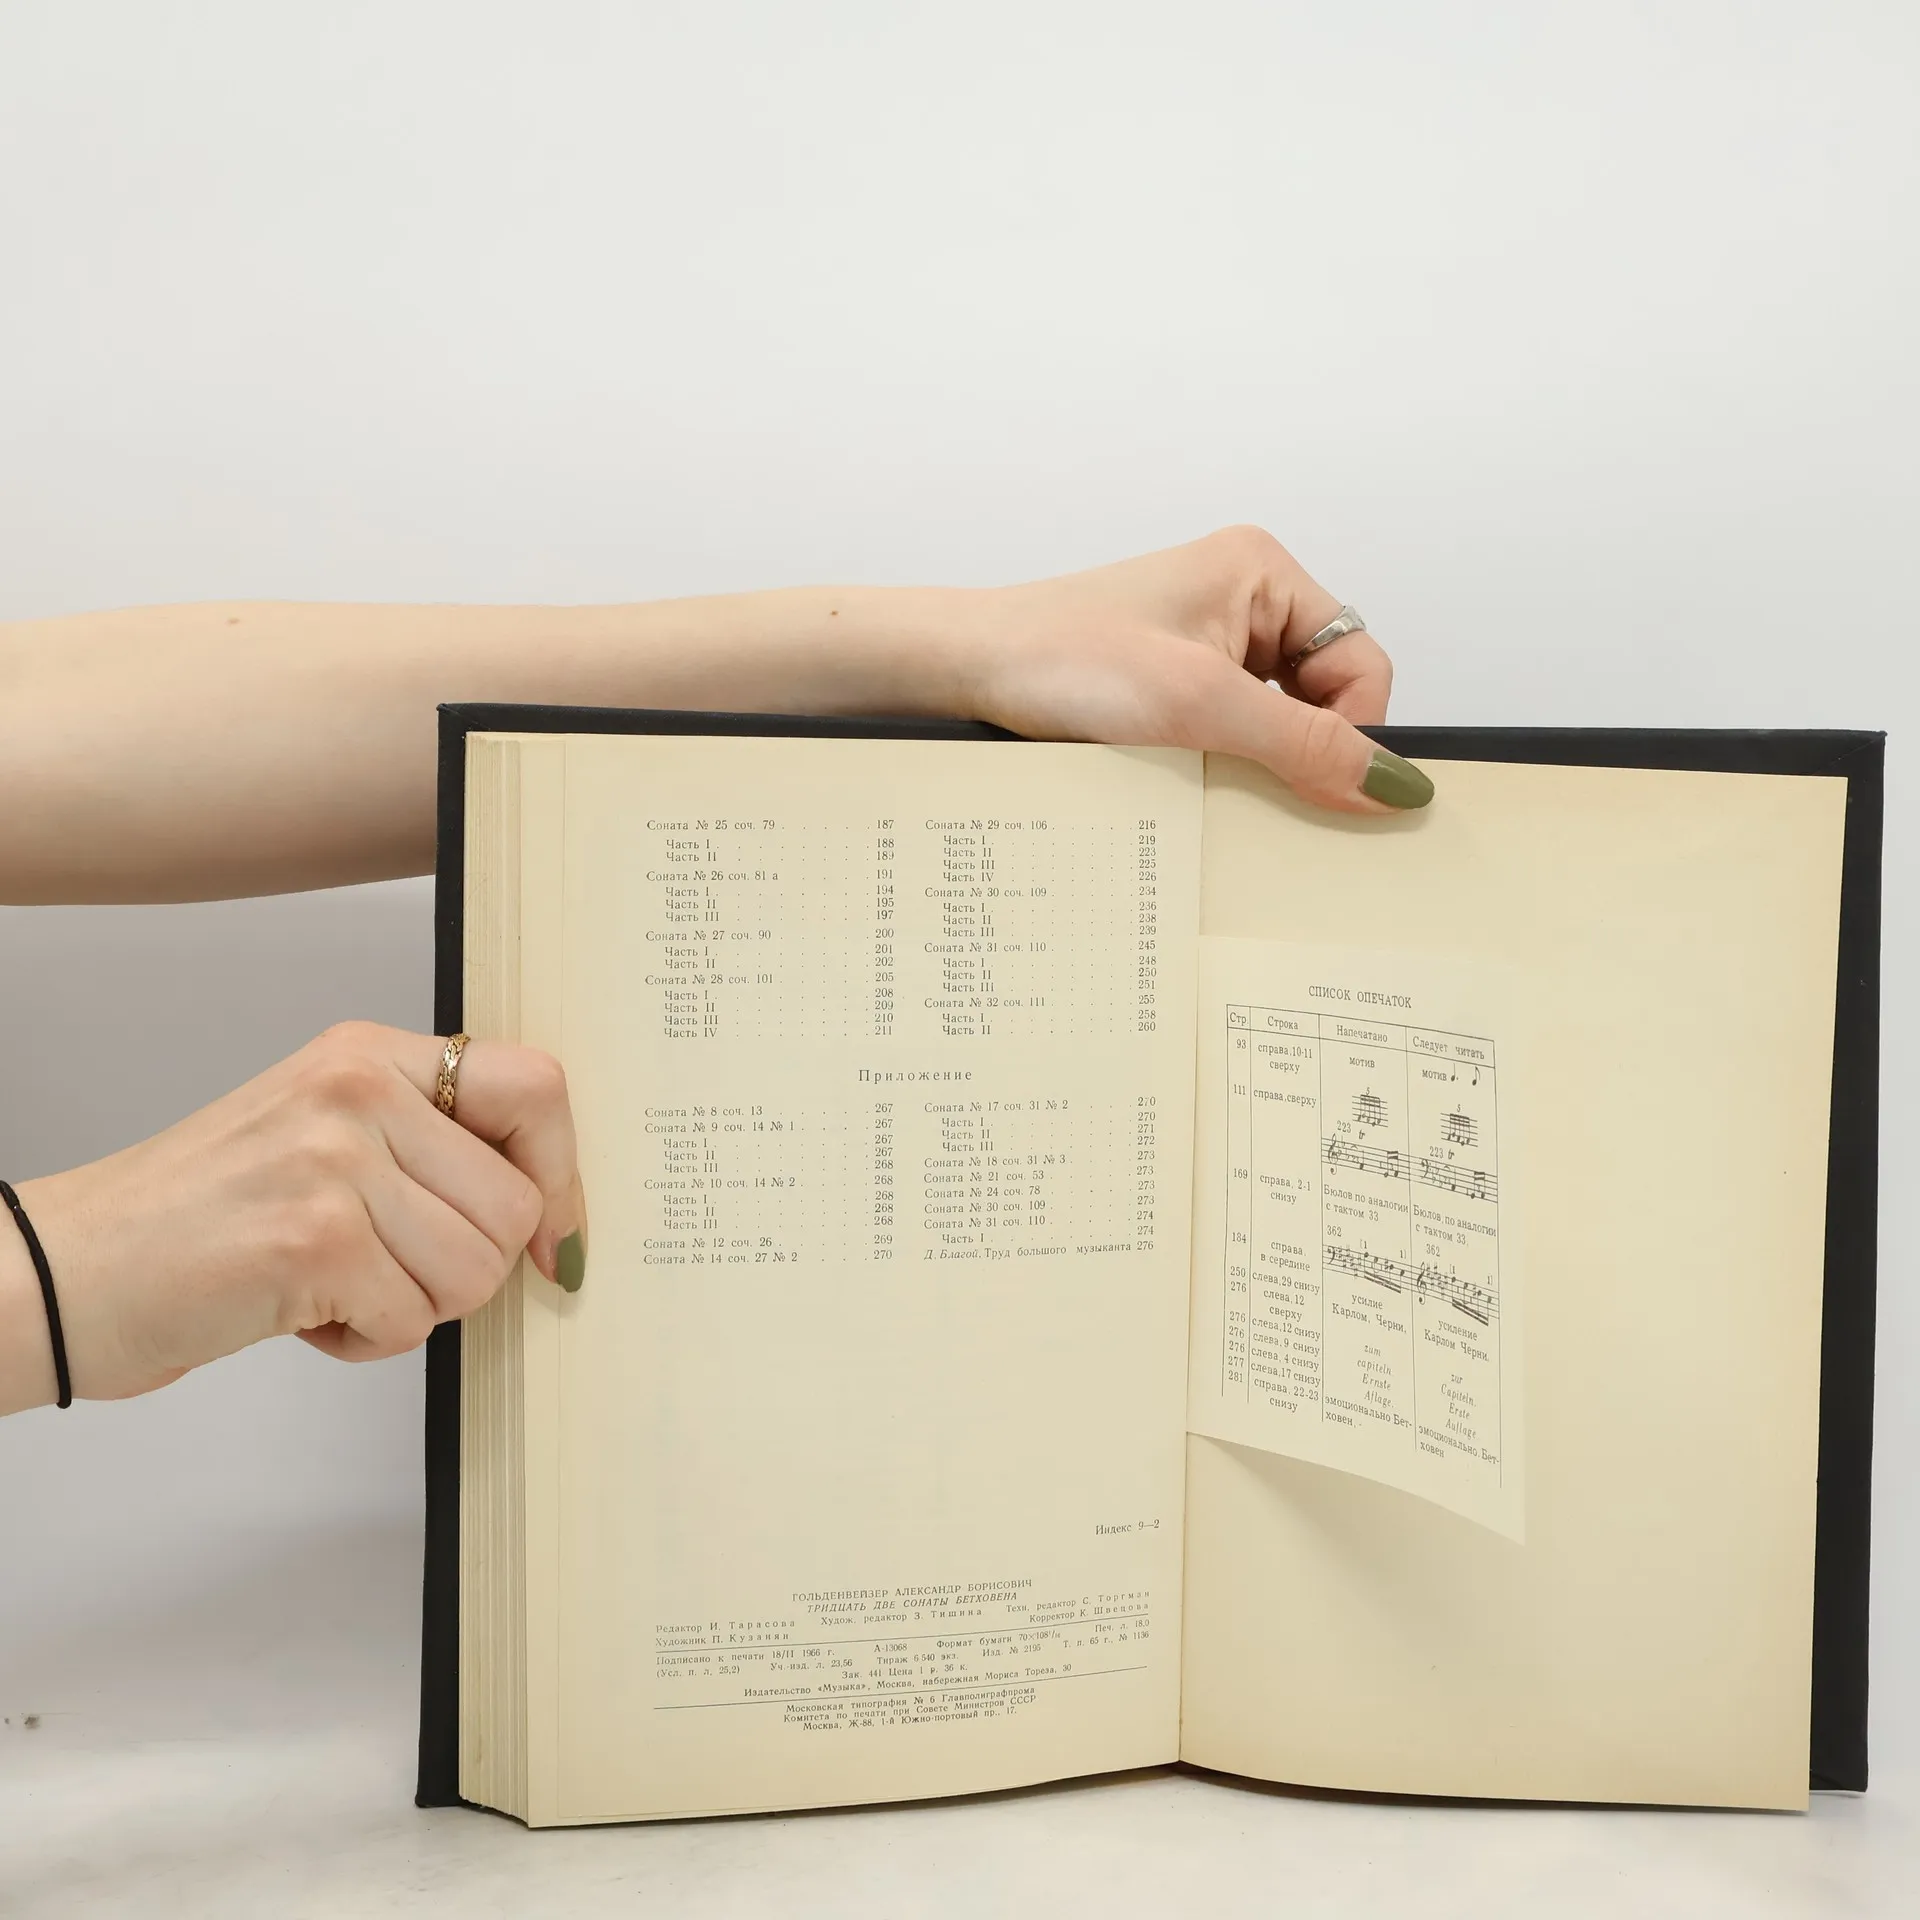 Соната № 25 соч. 79 . . . . . 187
Часть I . . . . . . . . 188
Часть II . . . . . . . 189
Соната № 26 соч. 81 а . . . . 191
Часть I . . . . . . . . 194
Часть II . . . . . . . 195
Часть III . . . . . . . 197
Соната № 27 соч. 90 . . . . . 200
Часть I . . . . . . . . 201
Часть II . . . . . . . 202
Соната № 28 соч. 101 . . . . . 205
Часть I . . . . . . . . 208
Часть II . . . . . . . 209
Часть III . . . . . . . 210
Часть IV . . . . . . . 211
Соната № 29 соч. 106 . . . . . 216
Часть I . . . . . . . . 219
Часть II . . . . . . . 223
Часть III . . . . . . . 225
Часть IV . . . . . . . 226
Соната № 30 соч. 109 . . . . . 234
Часть I . . . . . . . . 236
Часть II . . . . . . . 238
Часть III . . . . . . . 239
Соната № 31 соч. 110 . . . . . 245
Часть I . . . . . . . . 248
Часть II . . . . . . . 250
Часть III . . . . . . . 251
Соната № 32 соч. 111 . . . . . 255
Часть I . . . . . . . . 258
Часть II . . . . . . . 260
Приложение
Соната № 8 соч. 13 . . . . . 267
Соната № 9 соч. 14 № 1 . . . . 267
Часть I . . . . . . . . 267
Часть II . . . . . . . 267
Часть III . . . . . . . 268
Соната № 10 соч. 14 № 2 . . . . 268
Часть I . . . . . . . . 268
Часть II . . . . . . . 268
Часть III . . . . . . . 268
Соната № 12 соч. 26 . . . . . 269
Соната № 14 соч. 27 № 2 . . . 270
Соната № 17 соч. 31 № 2 . . . 270
Часть I . . . . . . . . 270
Часть II . . . . . . . 271
Часть III . . . . . . . 272
Соната № 18 соч. 31 № 3 . . . . 273
Соната № 21 соч. 53 . . . . . 273
Соната № 24 соч. 78 . . . . . 273
Соната № 30 соч. 109 . . . . . 273
Соната № 31 соч. 110 . . . . . 274
Часть I . . . . . . . . 274
Д. Благой. Труд большого музыканта 276
Индекс 9—2
ГОЛЬДЕНВЕЙЗЕР АЛЕКСАНДР БОРИСОВИЧ
ТРИДЦАТЬ ДВЕ СОНАТЫ БЕТХОВЕНА
Редактор И. Тарасова Худож. редактор З. Тишина Техн. редактор С. Торгман
Художник П. Кузанян Корректор К. Швецова
Подписано к печати 18/II 1966 г. А-13068 Формат бумаги 70×108¹/₁₆ Печ. л. 18,0
(Усл. п. л. 25,2) Уч.-изд. л. 23,56 Тираж 6 540 экз. Изд. № 2195 Т. п. 65 г., № 1136
Зак. 441 Цена 1 р. 36 к.
Издательство «Музыка», Москва, набережная Мориса Тореза, 30
Московская типография № 6 Главполиграфпрома
Комитета по печати при Совете Министров СССР
Москва, Ж-88, 1-й Южно-портовый пр., 17.
СПИСОК ОПЕЧАТОК
Стр. Строка Напечатано Следует читать
93 справа, 10-11 сверху мотив мотив
111 справа, сверху 5 5
223 tr 223 tr
169 справа, 2-1 снизу Бюлов по аналогии с тактом 33 Бюлов, по аналогии с тактом 33,
184 справа, в середине 362 [1 1) 362 [1 1)
250 слева, 29 снизу усилие усиление
276 слева, 12 сверху Карлом, Черни, Карлом Черни,
276 слева, 12 снизу zum zur
276 слева, 9 снизу capiteln Capiteln.
276 слева, 4 снизу Ernste Erste
277 слева, 17 снизу Aflage. Auflage
281 справа, 22-23 снизу эмоционально Бетховен, - эмоционально. Бетховен